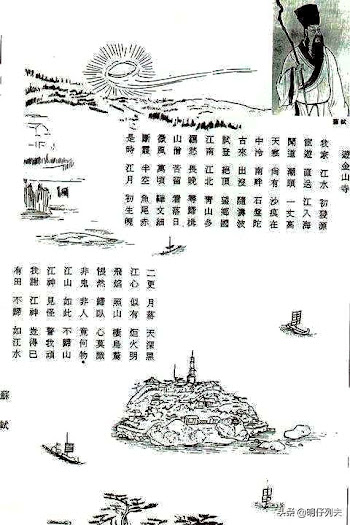 蘇軾
遊金山寺
我家江水初發源
宦遊直送江入海
聞道潮頭一丈高
天寒尚有沙痕在
中泠南畔石盤陀
古來出沒隨濤波
試登絕頂望鄉國
江南江北青山多
羈愁畏晚尋歸楫
山僧苦留看落日
微風萬頃靴文細
斷霞半空魚尾赤
是時江月初生魄
二更月落天深黑
江心似有炬火明
飛焰照山棲鳥驚
悵然歸臥心莫識
非鬼非人竟何物
江山如此不歸山
江神見怪驚我頑
我謝江神豈得已
有田不歸如江水
蘇軾
头条 @明仔列夫